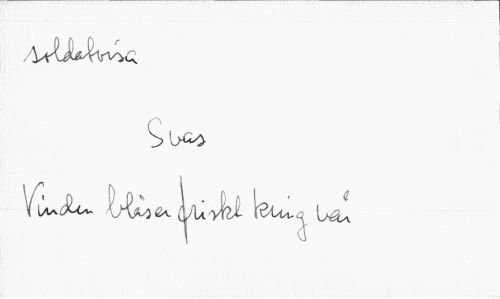 soldatvisa
Svas
Vinden blåser friskt kring vår